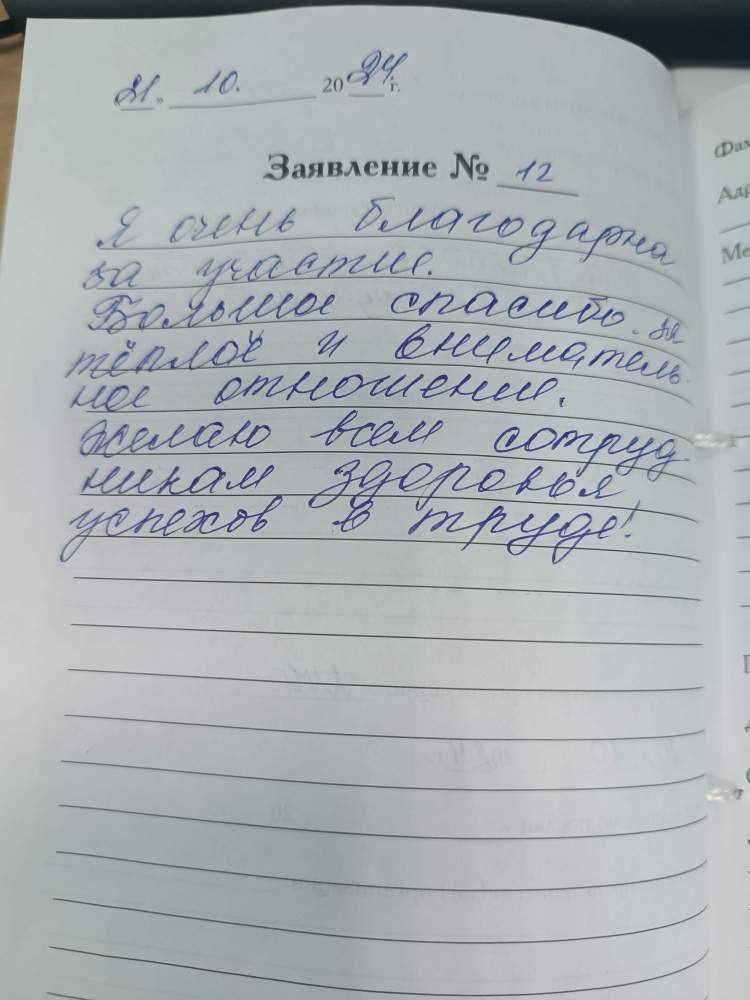 21 » 10. 2024 г.
Заявление № 12
Я очень благодарна
за участие.
Большое спасибо за
тёплое и вниматель-
ное отношение.
Желаю всем сотруд
никам здоровья
успехов в труде!
Фам
Адр
Ме